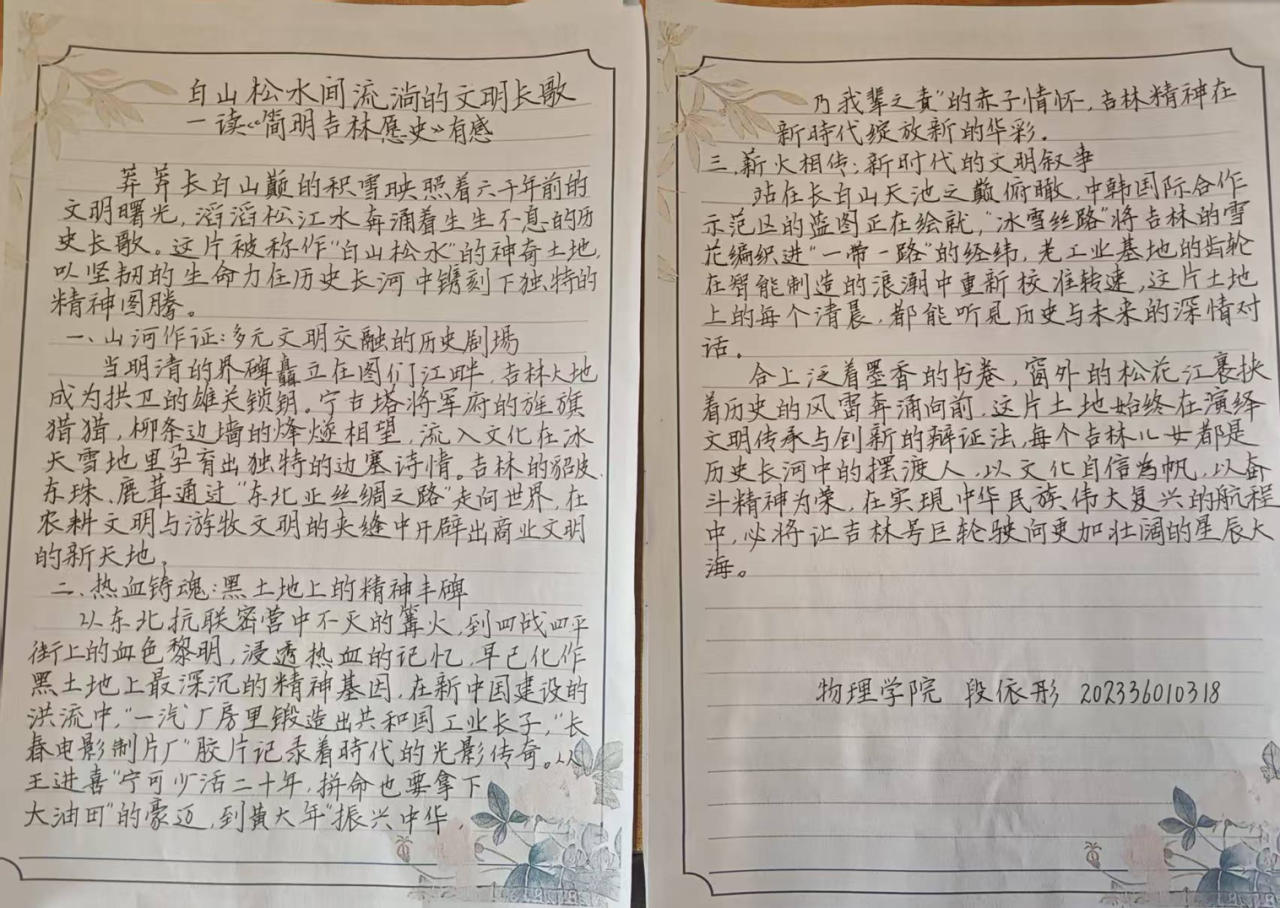 白山松水间流淌的文明长歌
—读《简明吉林历史》有感
莽莽长白山巅的积雪映照着六千年前的
文明曙光,滔滔松江水奔涌着生生不息的历
史长歌。这片被称作“白山松水”的神奇土地,
以坚韧的生命力在历史长河中镌刻下独特的
精神图腾。
一、山河作证:多元文明交融的历史剧場
当明清的界碑矗立在图们江畔,吉林大地
成为拱卫的雄关锁钥。宁古塔将军府的旌旗
猎猎,柳条边墙的烽燧相望,流入文化在冰
天雪地里孕育出独特的边塞诗情。吉林的貂皮、
东珠、鹿茸通过“东北亚丝绸之路”走向世界,在
农耕文明与游牧文明的夹缝中开辟出商业文明
的新天地。
二、热血铸魂:黑土地上的精神丰碑
从东北抗联密营中不灭的篝火,到四战四平
街上的血色黎明,浸透热血的记忆,早已化作
黑土地上最深沉的精神基因,在新中国建设的
洪流中,“一汽”厂房里锻造出共和国工业长子,“长
春电影制片厂”胶片记录着時代的光影传奇。从
王进喜“宁可少活二十年,拼命也要拿下
大油田”的豪迈,到黄大年“振兴中华,
乃我辈之责”的赤子情怀,吉林精神在
新時代绽放新的华彩.
三.薪火相传:新时代的文明叙事
站在长白山天池之巅俯瞰,中韩国际合作
示范区的蓝图正在绘就,“冰雪丝路”将吉林的雪
花编织进“一带一路”的经纬,老工业基地的齿轮
在智能制造的浪潮中重新校准转速,这片土地
上的每个清晨,都能听见历史与未来的深情对
话。
合上泛着墨香的书卷,窗外的松花江裹挟
着历史的风雷奔涌向前,这片土地始终在演绎
文明传承与创新的辩证法,每个吉林儿女都是
历史长河中的摆渡人,以文化自信為帆,以奋
斗精神为荣,在实現中华民族伟大复兴的航程
中,必将让吉林号巨轮驶向更加壮阔的星辰大
海。
物理学院 段依彤 202336010318